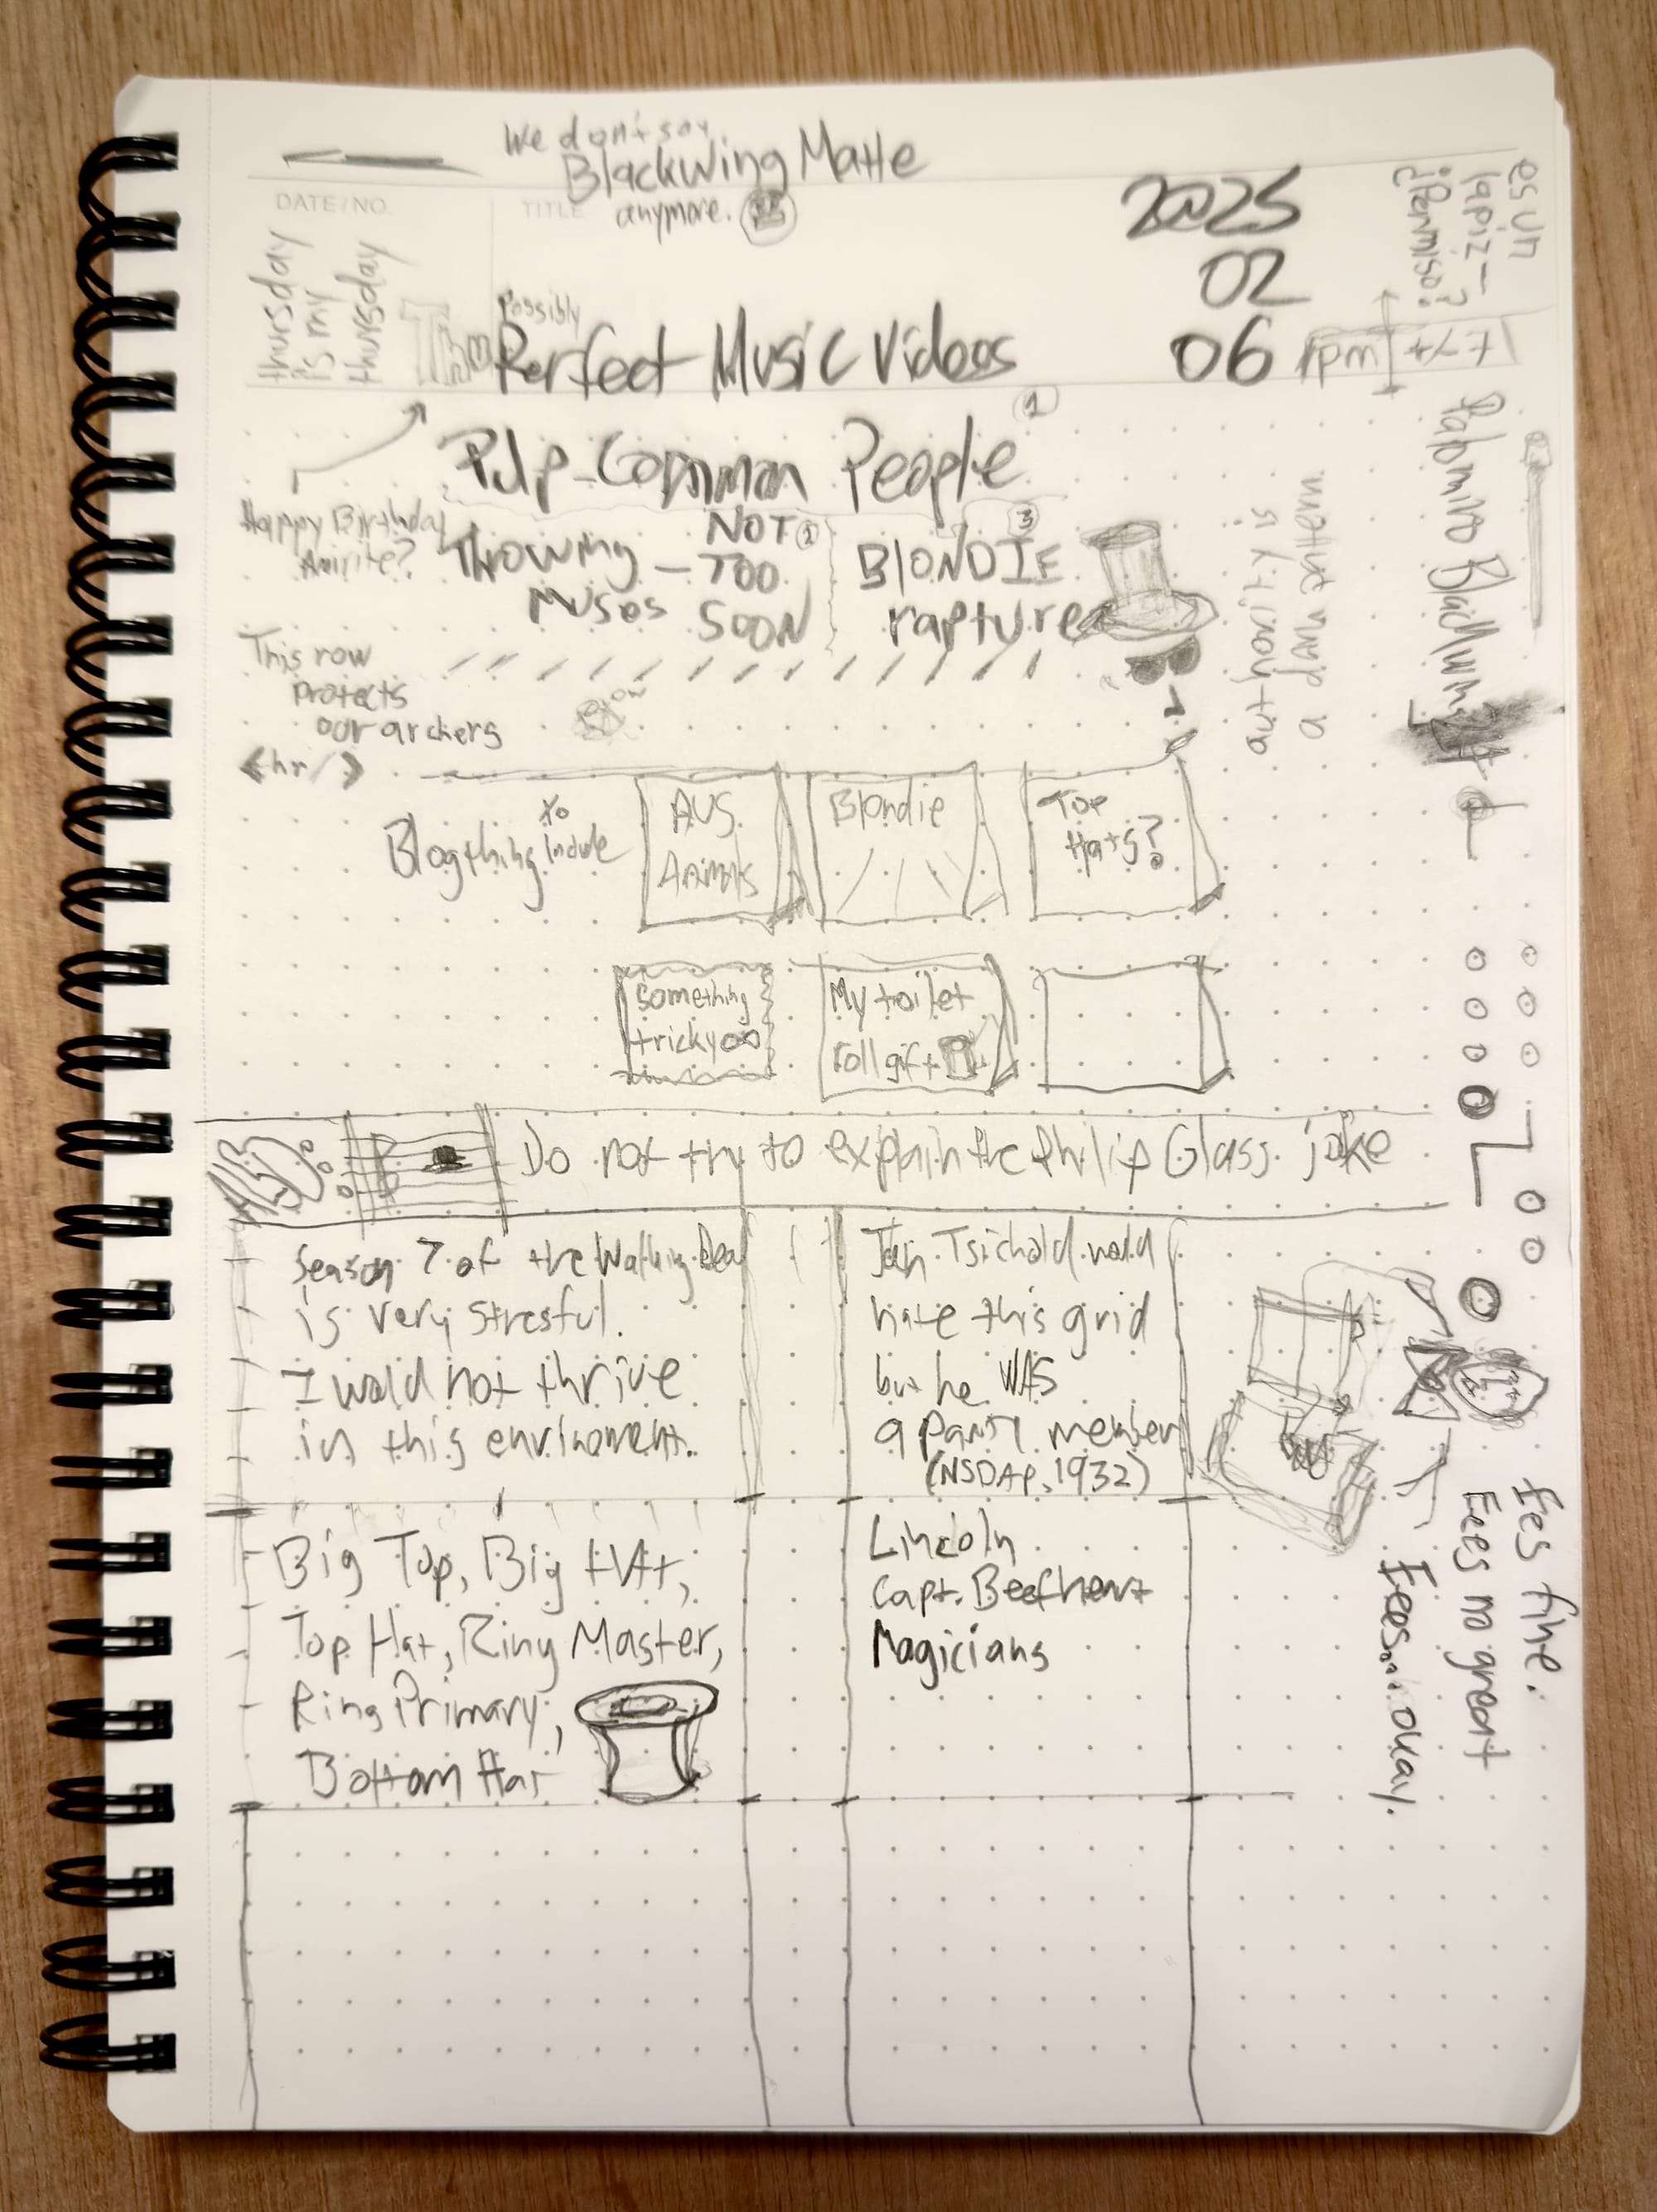 We don't say
Blackwing Matte
anymore.
DATE/NO.
TITLE
2025
02
06
thursday
is my
thursday
Possibly
Perfect Music Videos
rpm
es un
lapiz—?
¿Permiso?
1
Pulp - Common People
Happy Birthday
Amirite?
Throwing
Muses
—
NOT
TOO
SOON
3
BLONDIE
rapture
authority is
a damn threm
Palomino Blackwing
This row
protects
our archers
<hr/>
Blogthing to include
AUS.
Animals
Blondie
Top
Hats?
Something
tricky
My toilet
roll gift
Do not try to explain the Philip Glass joke
Season 7 of the Walking Dead
is very stresful.
I would not thrive
in this enviroment.
Jan Tsichold would
hate this grid
but he WAS
a party member
(NSDAP, 1932)
Big Top, Big Hat,
Top Hat, Ring Master,
Ring Primary,
Bottom Hat
Lincoln
Capt. Beefheart
Magicians
Ees fine.
Ees no great
Ees... okay.